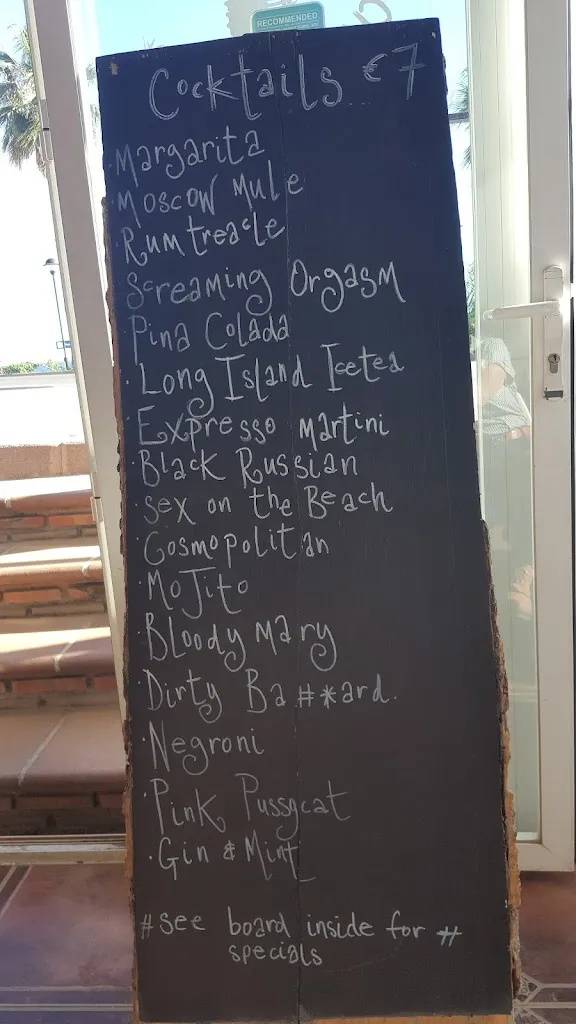 RECOMMENDED
Cocktails €7
Margarita
Moscow Mule
Rum treacle
Screaming Orgasm
Pina Colada
Long Island Icetea
Expresso Martini
Black Russian
Sex on the Beach
Cosmopolitan
Mojito
Bloody Mary
Dirty Ba#*ard.
Negroni
Pink Pussycat
Gin & Mint
#see board inside for #
specials